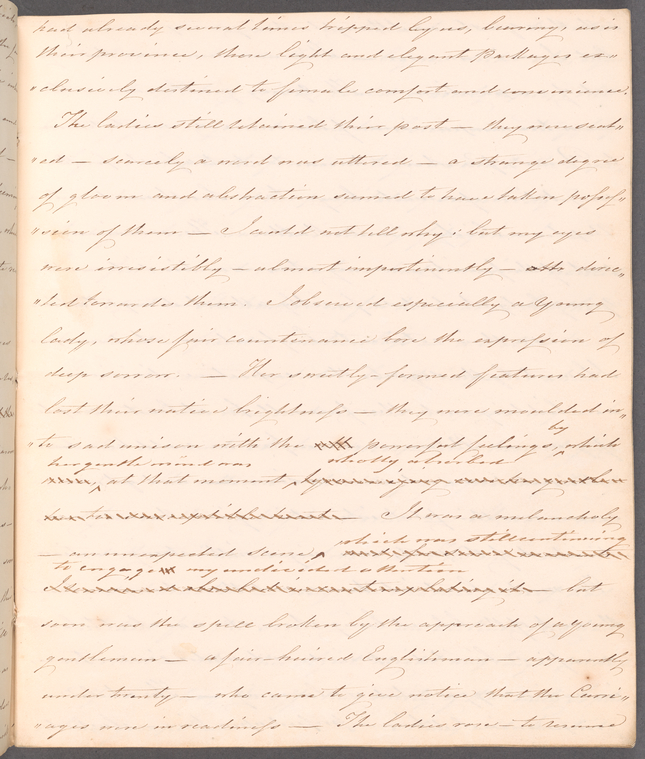 had already several times tripped by us, bearing, as is
their province, those light and elegant packages ex"
"clusively destined to female comfort and convenience.
The ladies still retained their post — they were seat"
"ed — scarcely a word was uttered — a strange degree
of gloom and abstraction seemed to have taken posses"
"sion of them — I could not tell why; but my eyes
were irresistibly — almost impertinently — direc"
"ted towards them. I observed especially a young
lady, whose fair countenance bore the expression of
deep sorrow. — Her sweetly-formed features had
lost their native brightness — they were moulded in"
"to sad unison with the powerful feelings, by which
her gentle mind was wholly absorbed
at that moment
It was a melancholy
— an unexpected scene, which was still continuing
to engage my undivided attention
but
soon was the spell broken by the approach of a young
gentleman — a fair-haired Englishman — apparently
under twenty — who came to give notice that the Carri"
"ages were in readiness — The ladies rose — to remove